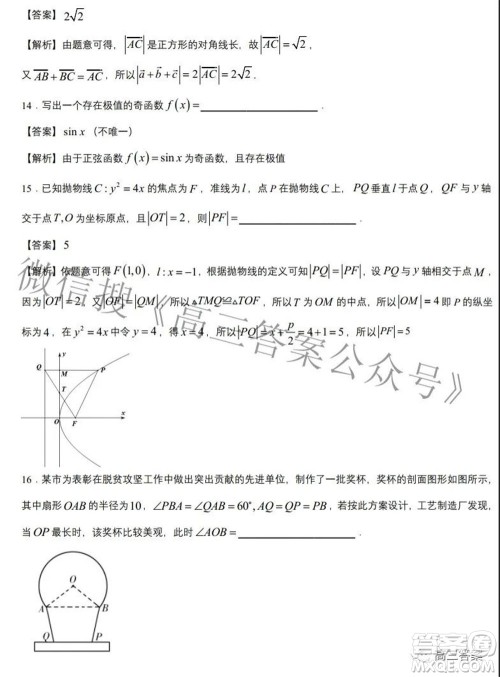 【答案】2√2
【解析】由题意可得，|AC|是正方形的对角线长，故|AC|=√2，
又AB+BC=AC，所以|a+b+c|=2|AC|=2√2．
14．写出一个存在极值的奇函数 f(x)=____________．
【答案】sin x（不唯一）
【解析】由于正弦函数 f(x)=sin x 为奇函数，且存在极值
15．已知抛物线C:y²=4x的焦点为F，准线为l，点P在抛物线C上，PQ垂直l于点Q，QF与y轴
交于点T,O为坐标原点，且|OT|=2，则|PF|=____________．
【答案】5
【解析】依题意可得F(1,0)，l:x=-1，根据抛物线的定义可知|PQ|=|PF|，设PQ与y轴相交于点M，
因为|OT|=2，又|OF|=|QM|所以△TMQ≌△TOF，所以T为OM的中点，所以|OM|=4即P的纵坐
标为4，在y²=4x中令y=4，得x=4，所以|PQ|=x+p/2=4+1=5，所以|PF|=5
y
Q M P
T
O F x
16．某市为表彰在脱贫攻坚工作中做出突出贡献的先进单位，制作了一批奖杯，奖杯的剖面图形如图所示，
其中扇形OAB的半径为10，∠PBA=∠QAB=60°,AQ=QP=PB，若按此方案设计，工艺制造厂发现，
当OP最长时，该奖杯比较美观，此时∠AOB=____________．
O
A B
Q P
微信搜《高三答案公众号》
高三答案